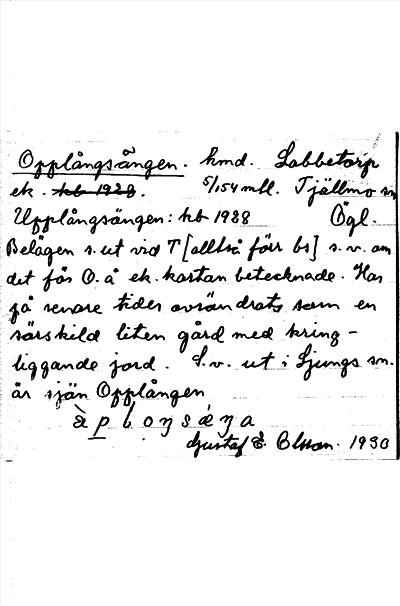 Opplångsängen. hmd. Labbetorp
ek. hb 1928. 5/154 mll. Tjällmo sn
Upplångsängen: hb 1988 Ögl.
Belägen s. ut vid T [alltså förr bs] s.v. om
det fås O. å ek. kartan betecknade. Har
på senare tider avsöndrats som en
särskild liten gård med kring-
liggande jord. S.v. ut i Ljungs sn.
är sjön Opplången
Gustaf E. Olsson. 1930